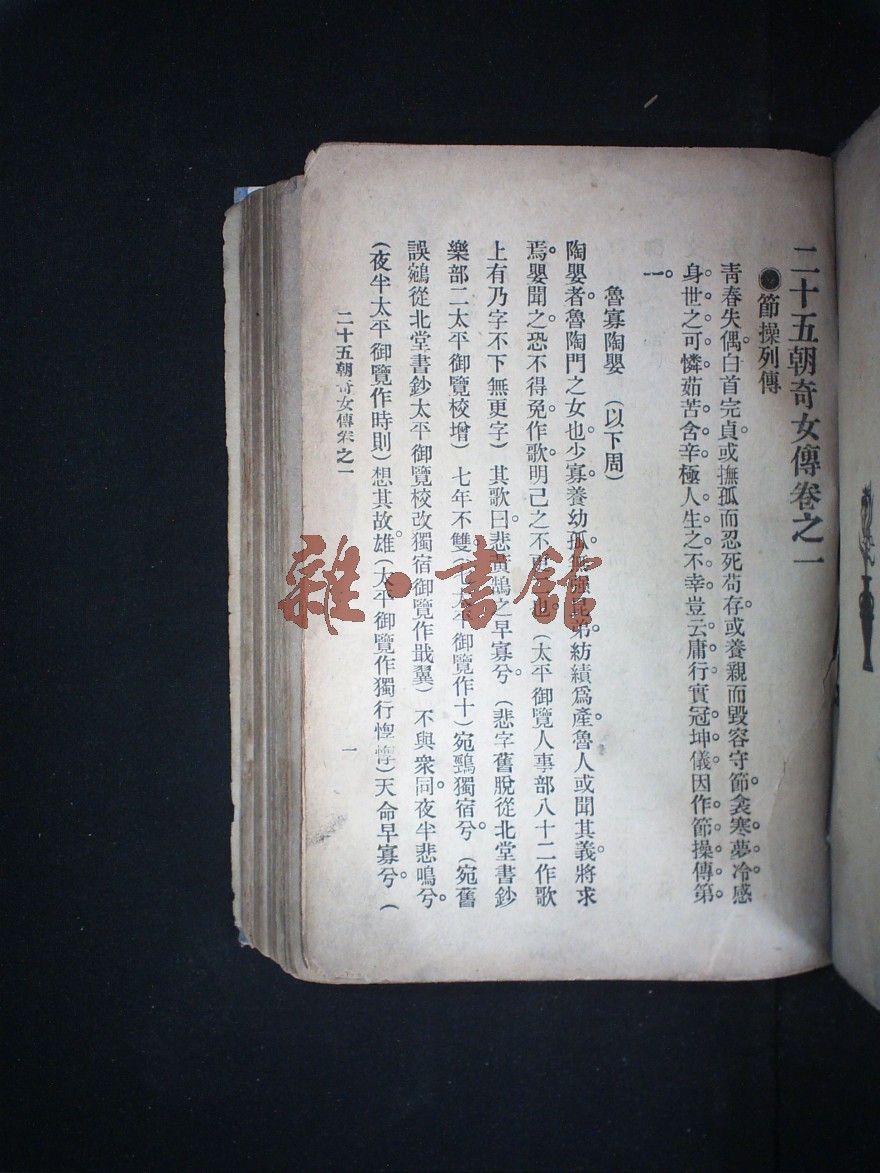 二十五朝奇女傳卷之一
●節操列傳
青春失偶。白首完貞。或撫孤而忍死苟存。或養親而毀容守節。衾寒夢冷。感
身世之可憐。茹苦含辛。極人生之不幸。豈云庸行。實冠坤儀。因作節操傳第
一。
魯寡陶嬰　(以下周)
陶嬰者。魯陶門之女也。少寡。養幼孤。無強昆弟。紡績爲產。魯人或聞其義。將求
焉。嬰聞之。恐不得免。作歌。明己之不更二也。(太平御覽人事部八十二作歌
上有乃字不下無更字)其歌曰。悲黃鵠之早寡兮。(悲字舊脫從北堂書鈔
樂部二太平御覽校增)七年不雙。(七太平御覽作十)宛鵛獨宿兮。(宛舊
誤鵷從北堂書鈔太平御覽校改獨宿御覽作戢翼)不與衆同。夜半悲鳴兮。
(夜半太平御覽作時則)想其故雄。(太平御覽作獨行惸惸)天命早寡兮。(
二十五朝奇女傳卷之一
一
雜·書館